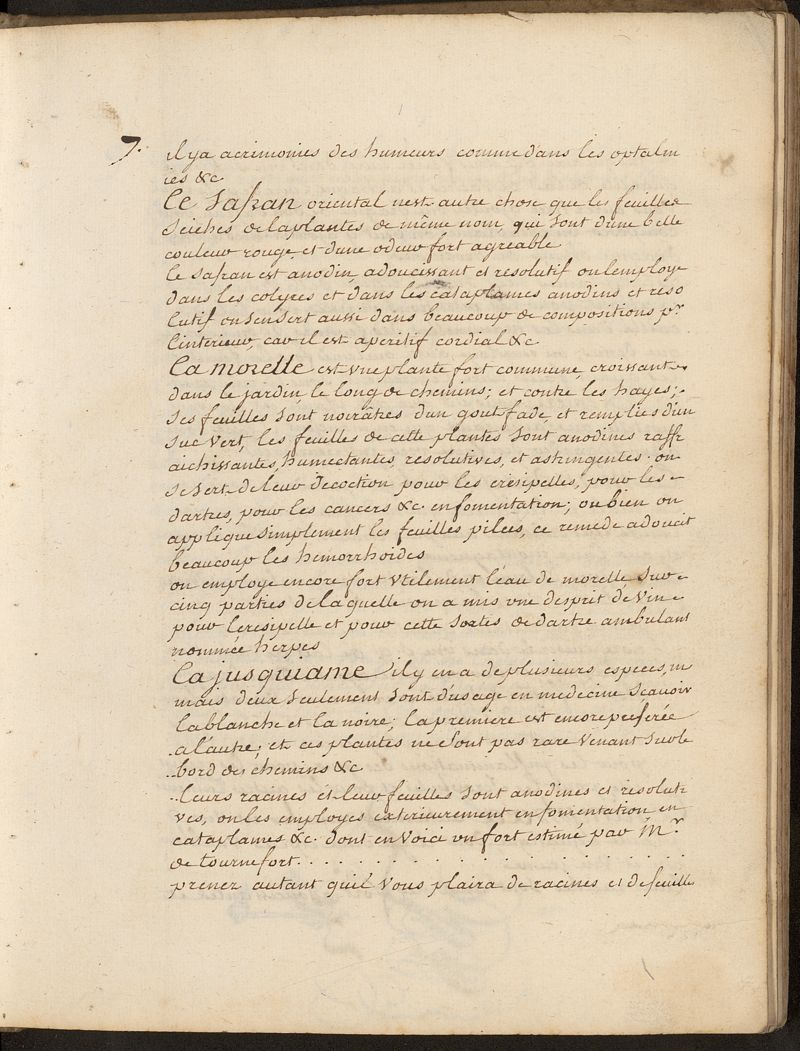 7. il y a acrimonies des humeurs comme dans les optalm
ies &c
Le Safran oriental nest autre chose que les feuilles
seiches de la plantes de même nom, qui sont d'une belle
couleur rouge et dune odeur fort agreable
le safran est anodin adoucissant et resolutif on lemploye
dans les colyres et dans les cataplames anodins et reso
lutif on sen sert aussi dans beaucoup de compositions pr
linterieur, car il est aperitif cordial &c
La morelle est une plante fort commune, croissant
dans le jardin, le long de chemins; et contre les hayes;
ses feuilles sont noirâtres dun gout fade, et remplies d'un
suc vert, les feuilles de cette plantes sont anodines raffr
aichissantes, humectantes, resolutives, et astringentes. on
se sert de leur decoction pour les eresipelles, pour les
dartres, pour les cancers &c. en fomentation; ou bien on
applique simplement les feuilles pilées, ce remede adoucit
beaucoup les hemorrhoides
on employe encore fort utilement léau de morelle, sur
cinq parties de laquelle on a mis une desprit de vin
pour leresipelle et pour cette sortes de dartre ambulant
nommée herpes
La jusquiame il y en a de plusieurs especes, m
mais deux seulement sont d'usage en medecine sçavoir
la blanche et la noire; la premiere est encore preferée
a l'autre; et ces plantes ne sont pas rare venant sur le
bord des chemins &c
leurs racines et leur feuilles sont anodines et resoluti
ves, on les employes exterieurement en fomentation en
cataplames &c. dont en voici un fort estimé par Mr
de tournefort. . . . . . . . . . . . . . . . . .
prenez autant quil vous plaira de racines et de feuilles